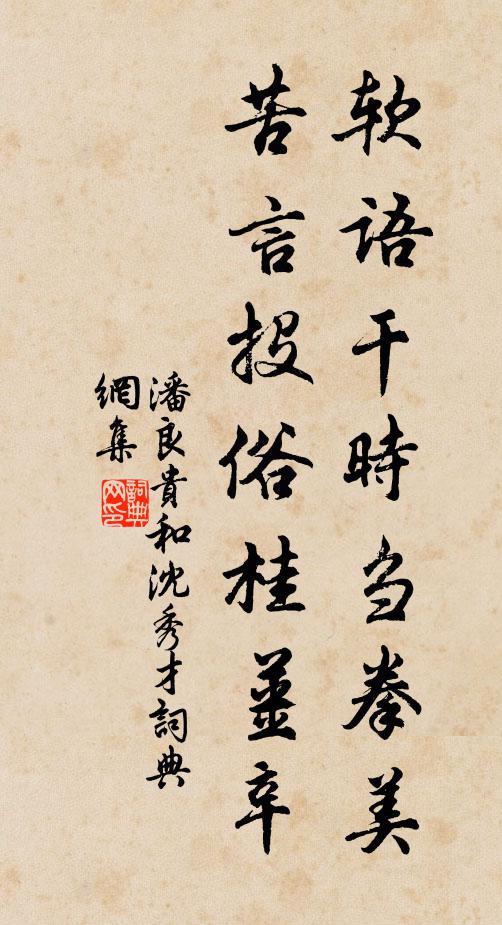 软語干時芻拳美
苦言投俗桂薑辛
潘良貴和沈秀才詞典
網集
詞典
网印